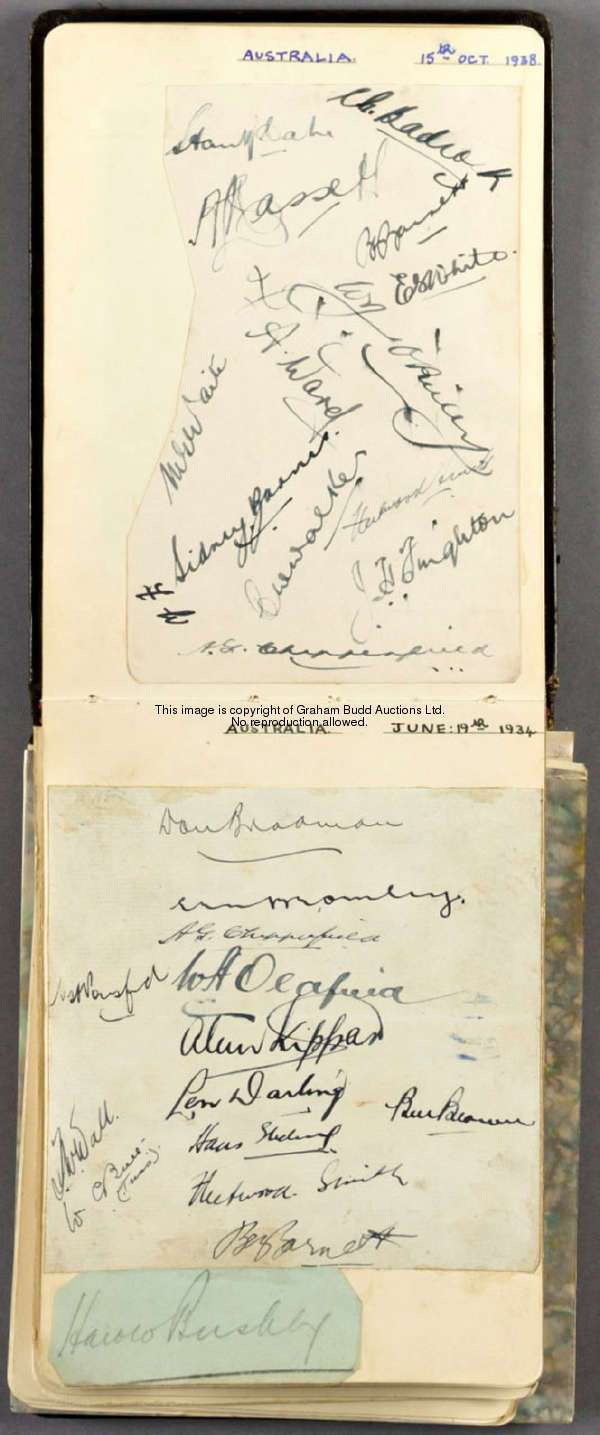 AUSTRALIA. 15TH OCT. 1938.
Ch. Badco K
A L Hassett
B A Barnett
E S White.
F. A. Ward
W J O'Reilly
M G Waite
Sidney G. Barnes.
C W Walker
Fleetwood Smith
J. H. Fingleton
A. G. Chipperfield
This image is copyright of Graham Budd Auctions Ltd.
No reproduction allowed.
AUSTRALIA. JUNE: 19TH 1934
Don Bradman
Ern Bromley.
A G. Chipperfield
W H Ponsford
Alan Kippax
Len Darling
Bill Brown
Hans Ebeling
T. W. Wall.
Fleetwood. Smith
B A Barnett
Harold Bushby